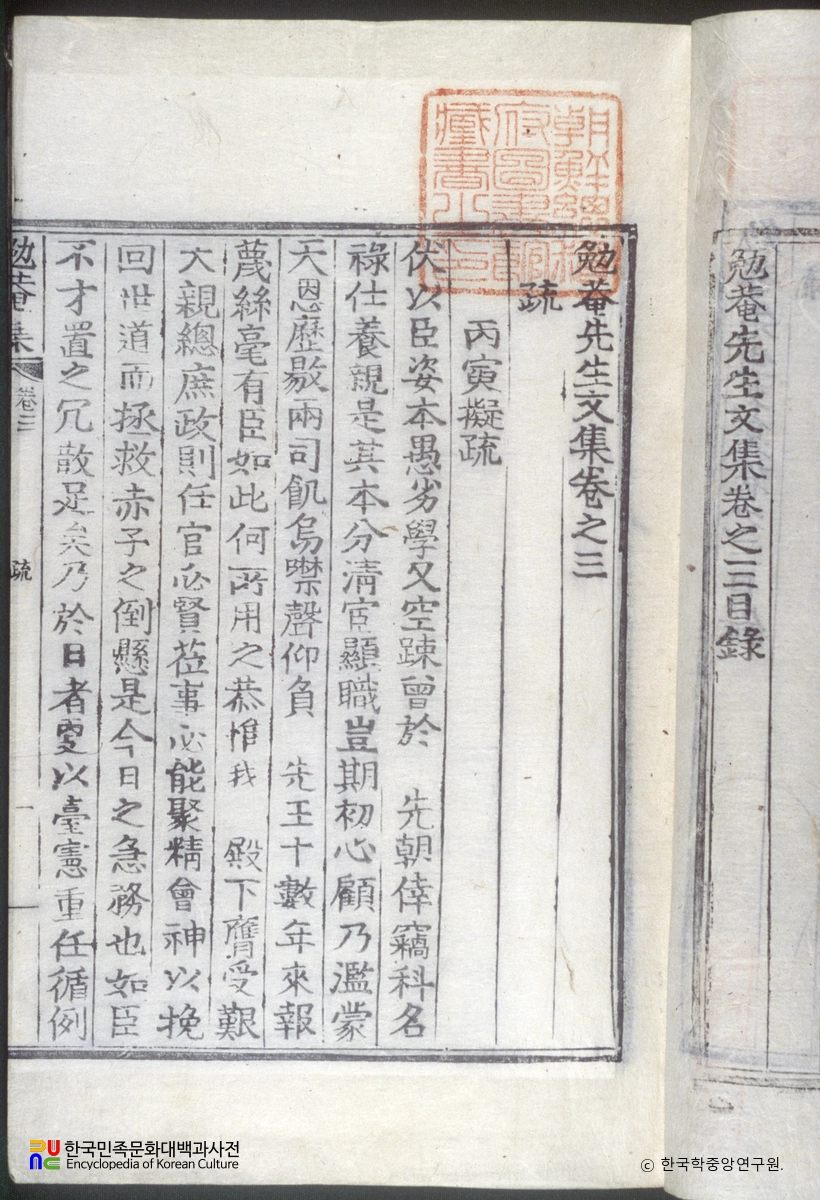 勉菴先生文集卷之三目錄
朝鮮總督
府圖書館
藏書之印
勉菴先生文集卷之三
疏
丙寅擬疏
伏以臣姿本愚劣學又空踈曾於 先朝倖竊科名
祿仕養親是其本分淸宦顯職豈期初心顧乃濫蒙
天恩歷敭兩司飢烏噤聲仰負 先王十數年來報
蔑絲毫有臣如此何所用之恭惟我 殿下膺受艱
大親總庶政則任官必賢莅事必能聚精會神以挽
回世道而拯救赤子之倒懸是今日之急務也如臣
不才置之冗散足矣乃於日者更以臺憲重任循例
勉菴集 卷三 疏 一
한국민족문화대백과사전
Encyclopedia of Korean Culture
© 한국학중앙연구원.